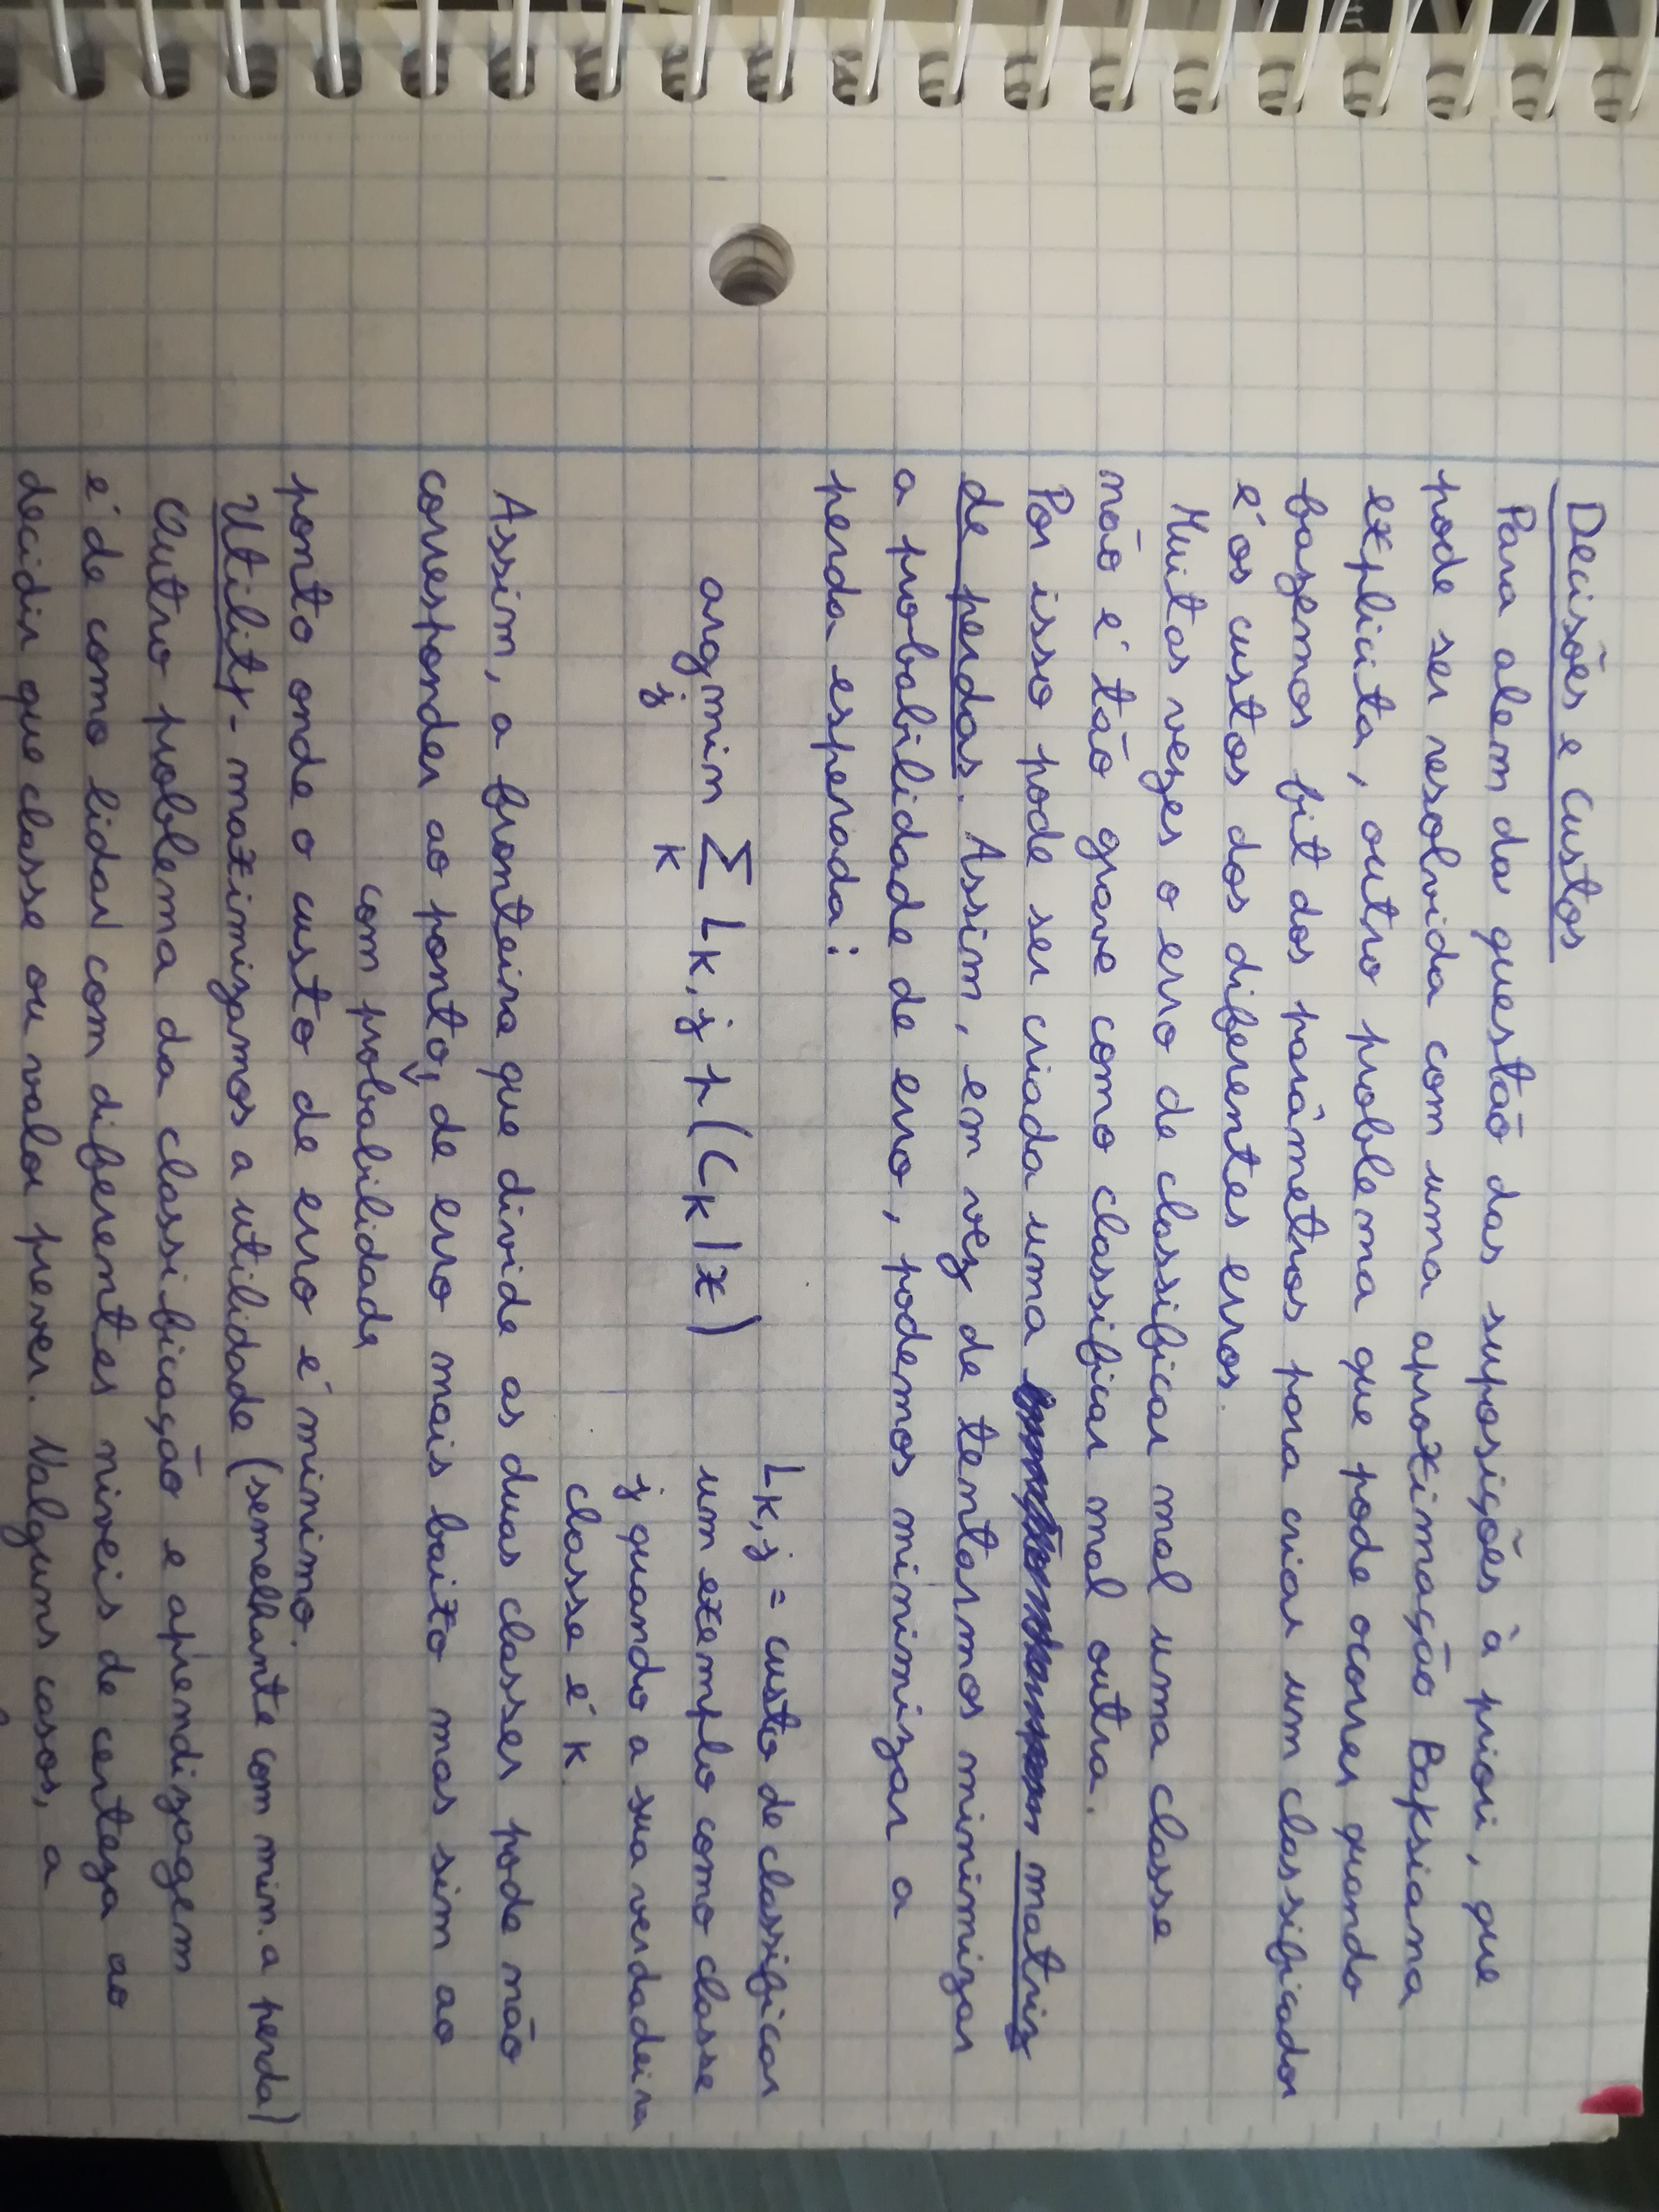 Decisões e Custos
Para alem da questão das suposições à priori, que
pode ser resolvida com uma aproximação Baysiana
explicita, outro problema que pode ocorrer quando
fazemos fit dos parâmetros para criar um classificador
é os custos dos diferentes erros.
Muitas vezes o erro de classificar mal uma classe
não é tão grave como classificar mal outra.
Por isso pode ser criada uma matriz
de perdas. Assim, em vez de tentarmos minimizar
a probabilidade de erro, podemos minimizar a
perda esperada:
argmin Σ Lk,j p(Ck|x)
j k
Lk,j = custo de classificar
um exemplo como classe
j quando a sua verdadeira
classe é k
Assim, a fronteira que divide as duas classes pode não
corresponder ao ponto, de erro mais baixo mas sim ao
com probabilidade
ponto onde o custo de erro é minimo.
Utility - maximizamos a utilidade (semelhante com min. a perda)
Outro problema da classificação e aprendizagem
é de como lidar com diferentes niveis de certeza ao
decidir que classe ou valor prever. Nalguns casos, a